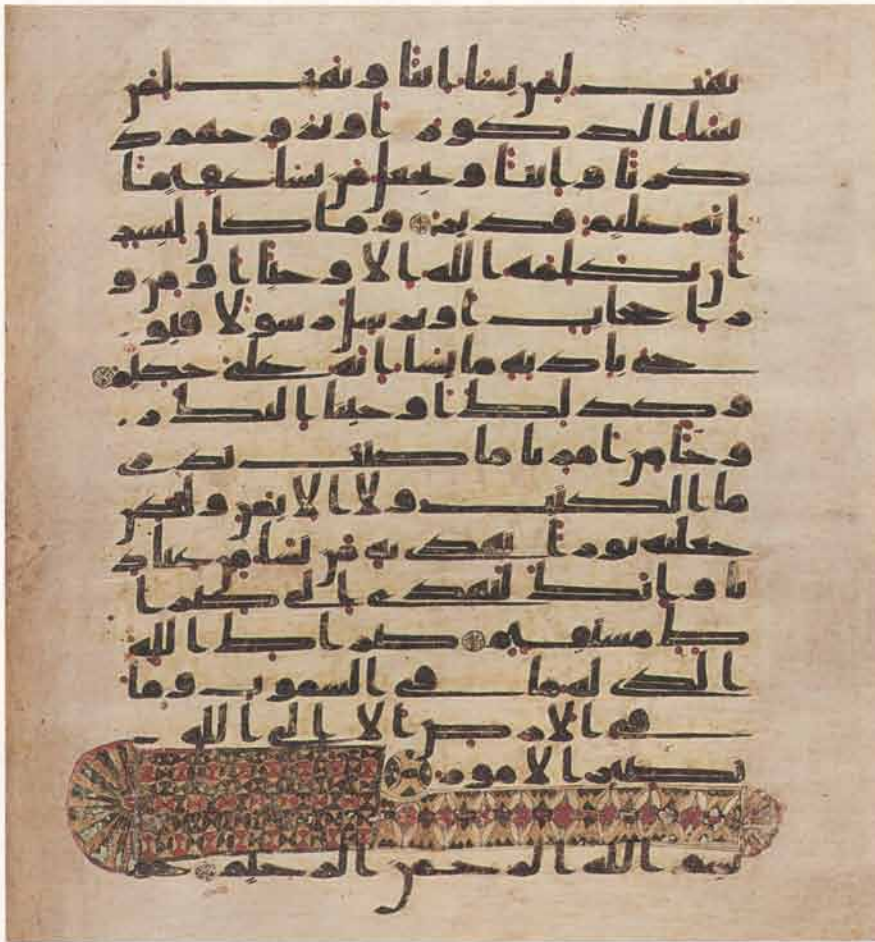 يهب لمن يشا انثا ويهب لمن
يشا الذكور او يزوجهم ذ
كرنا وانثا ويجعل من يشا عقيما
انه عليم قدير وما كان لبشر
ان يكلمه الله الا وحيا او من و
را حجاب او يرسل رسولا فيو
حي باذنه ما يشا انه علي حكيم
وكذلك اوحينا اليك ر
وحا من امرنا ما كنت تدري
ما الكتب ولا الايمن ولكن
جعلنه نورا نهدي به من نشا من عباد
نا وانك لتهدي الى صرا
ط مستقيم صراط الله
الذي له ما في السموت وما
في الارض الا الى الله
تصير الامور
بسم الله الرحمن الرحيم حم